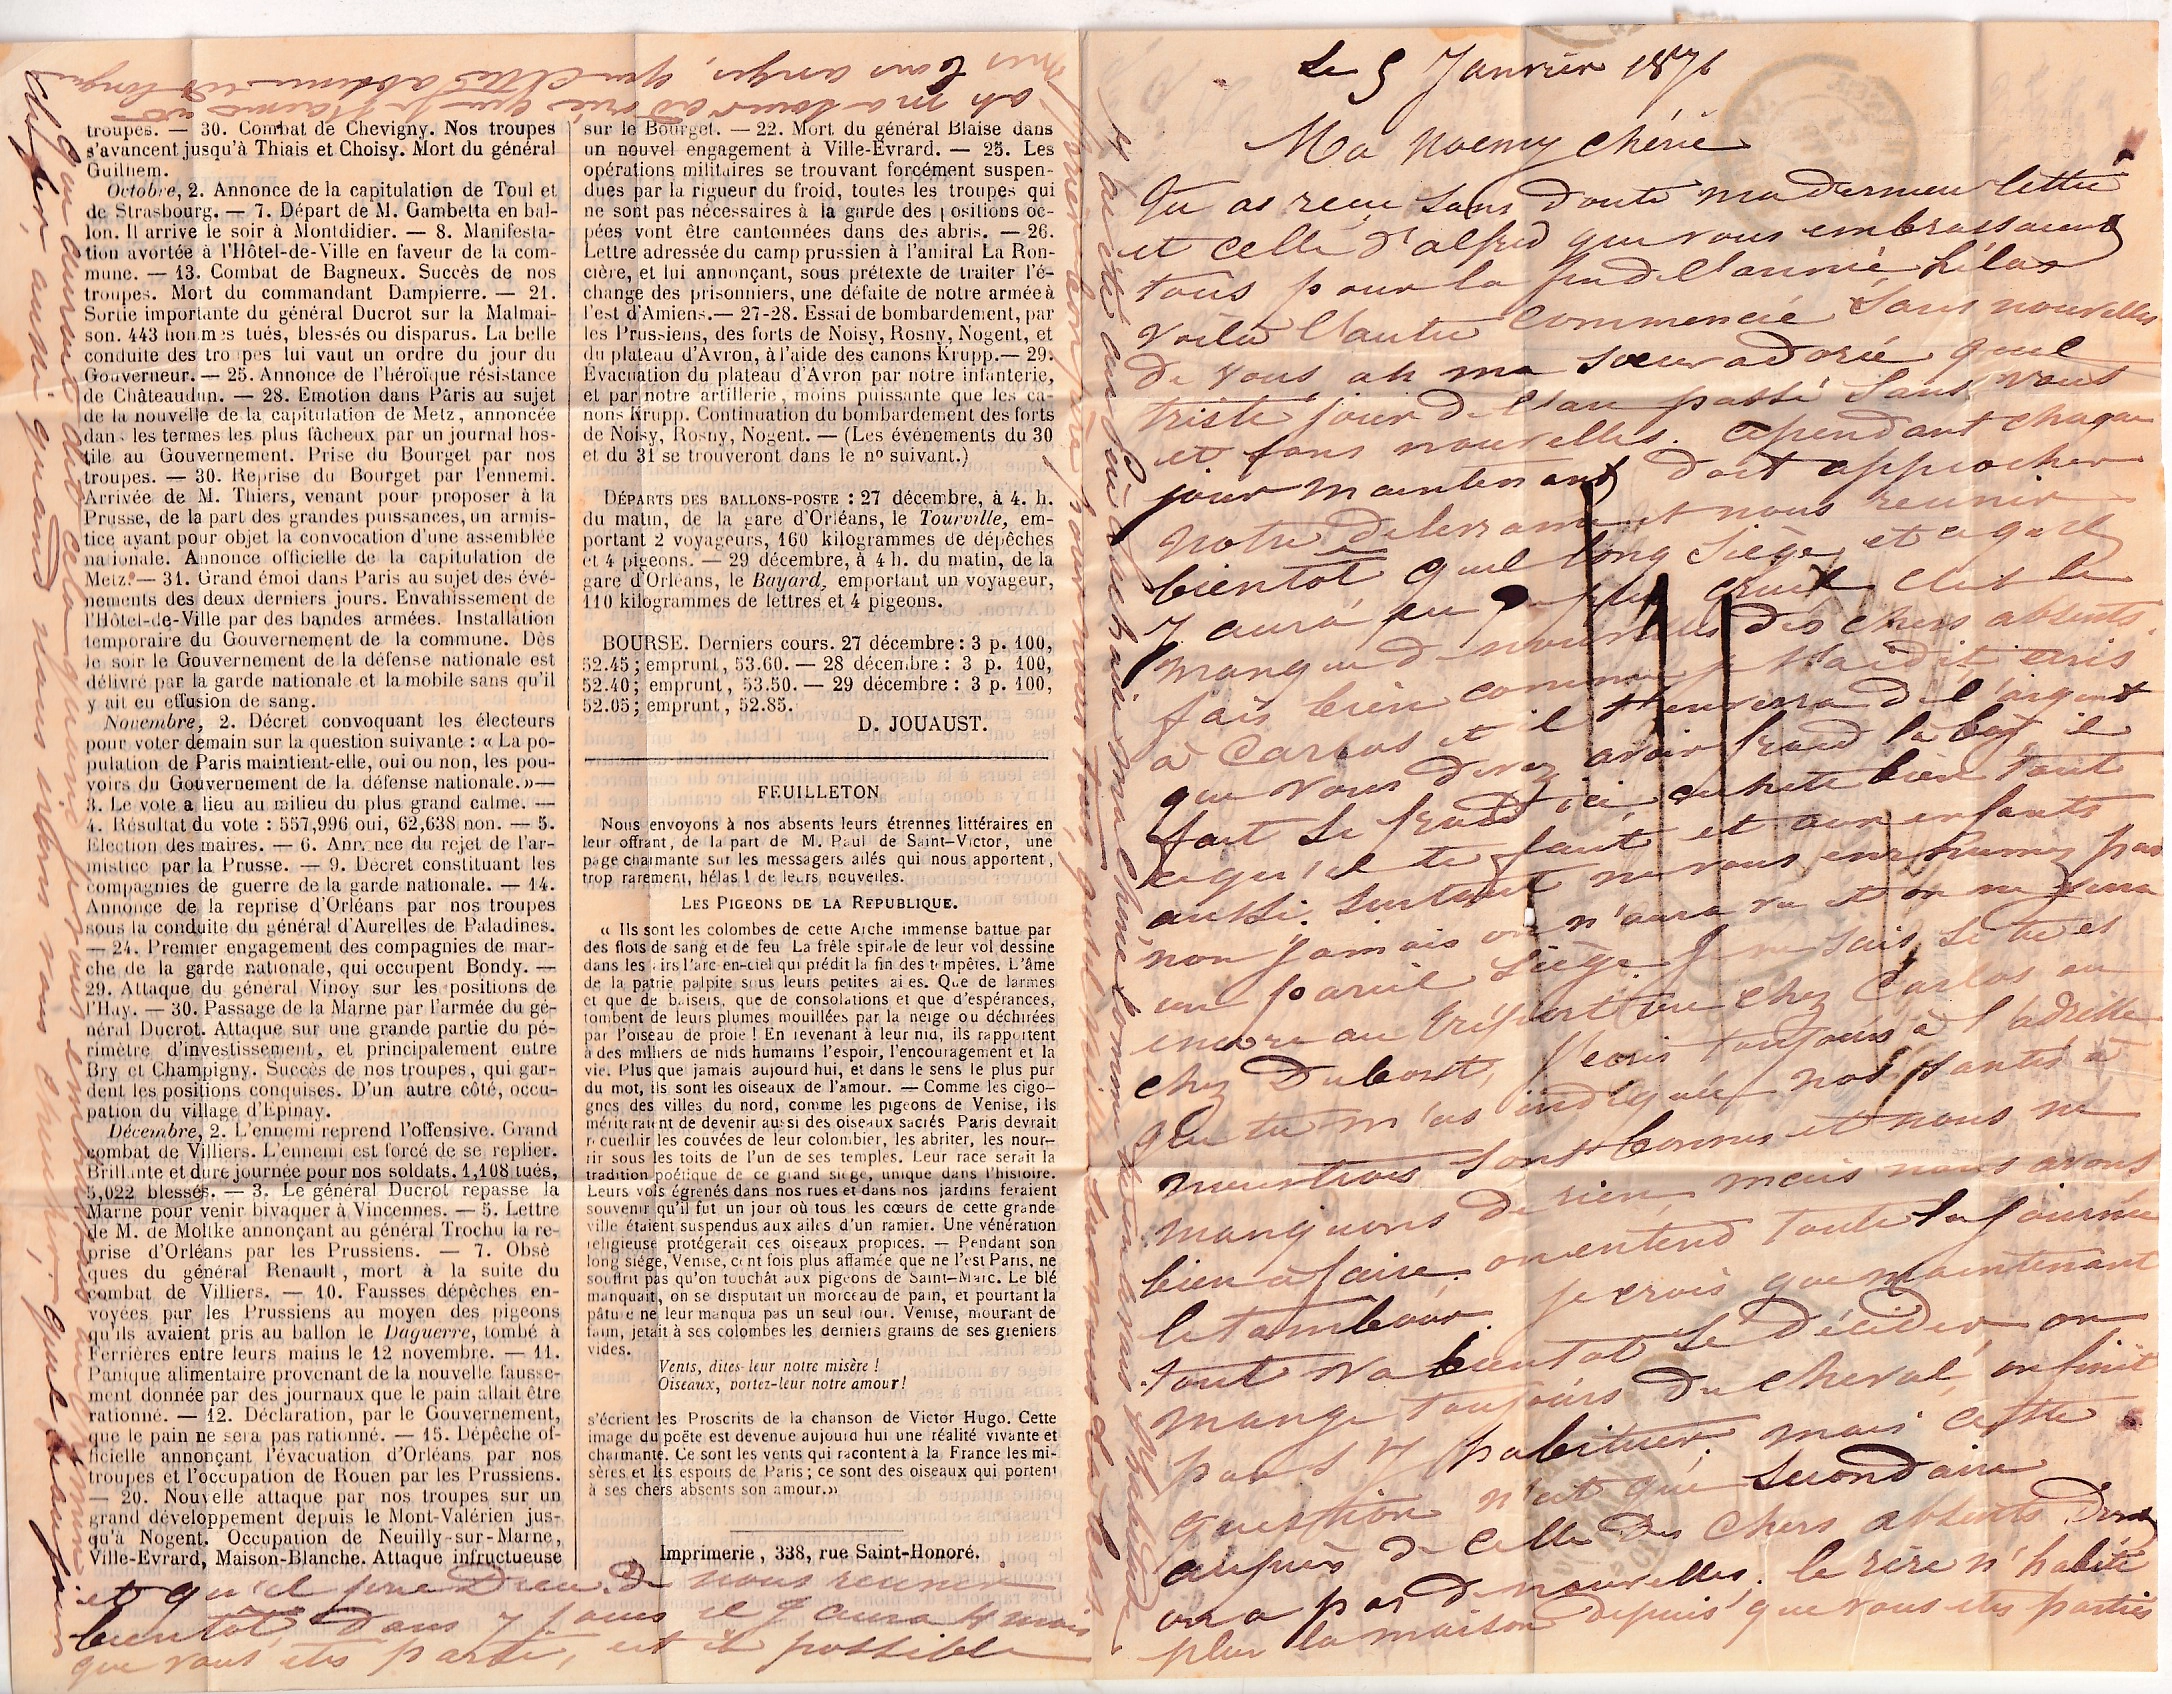 troupes. — 30. Combat de Chevigny. Nos troupes
s'avancent jusqu'à Thiais et Choisy. Mort du général
Guilhem.
Octobre, 2. Annonce de la capitulation de Toul et
de Strasbourg. — 7. Départ de M. Gambetta en bal-
lon. Il arrive le soir à Montdidier. — 8. Manifesta-
tion avortée à l'Hôtel-de-Ville en faveur de la com-
mune. — 13. Combat de Bagneux. Succès de nos
troupes. Mort du commandant Dampierre. — 21.
Sortie importante du général Ducrot sur la Malmai-
son. 443 hommes tués, blessés ou disparus. La belle
conduite des troupes lui vaut un ordre du jour du
Gouverneur. — 25. Annonce de l'héroïque résistance
de Châteaudun. — 28. Emotion dans Paris au sujet
de la nouvelle de la capitulation de Metz, annoncée
dans les termes les plus fâcheux par un journal hos-
tile au Gouvernement. Prise du Bourget par nos
troupes. — 30. Reprise du Bourget par l'ennemi.
Arrivée de M. Thiers, venant pour proposer à la
Prusse, de la part des grandes puissances, un armis-
tice ayant pour objet la convocation d'une assemblée
nationale. Annonce officielle de la capitulation de
Metz. — 31. Grand émoi dans Paris au sujet des évé-
nements des deux derniers jours. Envahissement de
l'Hôtel-de-Ville par des bandes armées. Installation
temporaire du Gouvernement de la commune. Dès
le soir le Gouvernement de la défense nationale est
délivré par la garde nationale et la mobile sans qu'il
y ait eu effusion de sang.
Novembre, 2. Décret convoquant les électeurs
pour voter demain sur la question suivante : « La po-
pulation de Paris maintient-elle, oui ou non, les pou-
voirs du Gouvernement de la défense nationale.» —
3. Le vote a lieu au milieu du plus grand calme. —
4. Résultat du vote : 557,996 oui, 62,638 non. — 5.
Élection des maires. — 6. Annonce du rejet de l'ar-
mistice par la Prusse. — 9. Décret constituant les
compagnies de guerre de la garde nationale. — 14.
Annonce de la reprise d'Orléans par nos troupes
sous la conduite du général d'Aurelles de Paladines.
— 24. Premier engagement des compagnies de mar-
che de la garde nationale, qui occupent Bondy. —
29. Attaque du général Vinoy sur les positions de
l'Hay. — 30. Passage de la Marne par l'armée du gé-
néral Ducrot. Attaque sur une grande partie du pé-
rimètre d'investissement, et principalement entre
Bry et Champigny. Succès de nos troupes, qui gar-
dent les positions conquises. D'un autre côté, occu-
pation du village d'Epinay.
Décembre, 2. L'ennemi reprend l'offensive. Grand
combat de Villiers. L'ennemi est forcé de se replier.
Brillante et dure journée pour nos soldats. 1,108 tués,
5,022 blessés. — 3. Le général Ducrot repasse la
Marne pour venir bivaquer à Vincennes. — 5. Lettre
de M. de Moltke annonçant au général Trochu la re-
prise d'Orléans par les Prussiens. — 7. Obsè
ques du général Renault, mort à la suite du
combat de Villiers. — 10. Fausses dépêches en-
voyées par les Prussiens au moyen des pigeons
qu'ils avaient pris au ballon le Daguerre, tombé à
Ferrières entre leurs mains le 12 novembre. — 11.
Panique alimentaire provenant de la nouvelle fausse-
ment donnée par des journaux que le pain allait être
rationné. — 12. Déclaration, par le Gouvernement,
que le pain ne sera pas rationné. — 15. Dépêche of-
ficielle annonçant l'évacuation d'Orléans par nos
troupes et l'occupation de Rouen par les Prussiens.
— 20. Nouvelle attaque par nos troupes sur un
grand développement depuis le Mont-Valérien jus-
qu'à Nogent. Occupation de Neuilly-sur-Marne,
Ville-Evrard, Maison-Blanche. Attaque infructueuse
sur le Bourget. — 22. Mort du général Blaise dans
un nouvel engagement à Ville-Evrard. — 25. Les
opérations militaires se trouvant forcément suspen-
dues par la rigueur du froid, toutes les troupes qui
ne sont pas nécessaires à la garde des positions oc-
pées vont être cantonnées dans des abris. — 26.
Lettre adressée du camp prussien à l'amiral La Ron-
cière, et lui annonçant, sous prétexte de traiter l'é-
change des prisonniers, une défaite de notre armée à
l'est d'Amiens. — 27-28. Essai de bombardement, par
les Prussiens, des forts de Noisy, Rosny, Nogent, et
du plateau d'Avron, à l'aide des canons Krupp. — 29.
Evacuation du plateau d'Avron par notre infanterie,
et par notre artillerie, moins puissante que les ca-
nons Krupp. Continuation du bombardement des forts
de Noisy, Rosny, Nogent. — (Les événements du 30
et du 31 se trouveront dans le nº suivant.)
DÉPARTS DES BALLONS-POSTE : 27 décembre, à 4. h.
du matin, de la gare d'Orléans, le Tourville, em-
portant 2 voyageurs, 160 kilogrammes de dépêches
et 4 pigeons. — 29 décembre, à 4 h. du matin, de la
gare d'Orléans, le Bayard, emportant un voyageur,
110 kilogrammes de lettres et 4 pigeons.
BOURSE. Derniers cours. 27 décembre : 3 p. 100,
52.45 ; emprunt, 53.60. — 28 décembre : 3 p. 100,
52.40 ; emprunt, 53.50. — 29 décembre : 3 p. 100,
52.05 ; emprunt, 52.85.
D. JOUAUST.
FEUILLETON
Nous envoyons à nos absents leurs étrennes littéraires en
leur offrant, de la part de M. Paul de Saint-Victor, une
page charmante sur les messagers ailés qui nous apportent,
trop rarement, hélas ! de leurs nouvelles.
LES PIGEONS DE LA RÉPUBLIQUE.
« Ils sont les colombes de cette Arche immense battue par
des flots de sang et de feu La frêle spirale de leur vol dessine
dans les airs l'arc en-ciel qui prédit la fin des tempêtes. L'âme
de la patrie palpite sous leurs petites ailes. Que de larmes
et que de baisers, que de consolations et que d'espérances,
tombent de leurs plumes mouillées par la neige ou déchirées
par l'oiseau de proie ! En revenant à leur nid, ils rapportent
à des milliers de nids humains l'espoir, l'encouragement et la
vie. Plus que jamais aujourd hui, et dans le sens le plus pur
du mot, ils sont les oiseaux de l'amour. — Comme les cigo-
gnes des villes du nord, comme les pigeons de Venise, ils
mériteraient de devenir aussi des oiseaux sacrés Paris devrait
recueillir les couvées de leur colombier, les abriter, les nour-
rir sous les toits de l'un de ses temples. Leur race serait la
tradition poétique de ce grand siége, unique dans l'histoire.
Leurs vols égrenés dans nos rues et dans nos jardins feraient
souvenir qu'il fut un jour où tous les cœurs de cette grande
ville étaient suspendus aux ailes d'un ramier. Une vénération
religieuse protégerait ces oiseaux propices. — Pendant son
long siége, Venise, cent fois plus affamée que ne l'est Paris, ne
souffrit pas qu'on touchât aux pigeons de Saint-Marc. Le blé
manquait, on se disputait un morceau de pain, et pourtant la
pâture ne leur manqua pas un seul jour. Venise, mourant de
faim, jetait à ses colombes les derniers grains de ses greniers
vides.
Vents, dites-leur notre misère !
Oiseaux, portez-leur notre amour !
s'écrient les Proscrits de la chanson de Victor Hugo. Cette
image du poëte est devenue aujourd hui une réalité vivante et
charmante. Ce sont les vents qui racontent à la France les mi-
sères et les espoirs de Paris ; ce sont des oiseaux qui portent
à ses chers absents son amour.»
Imprimerie, 338, rue Saint-Honoré.
et qu'il Dieu de nous reunir
bientôt dans 7 jours il y aura 4 mois
que vous êtes parti, est il possible
Le 5 Janvier 1871
Ma Noemy chérie
Tu as reçu sans doute ma derniere lettre
et celle d'alfred qui vous embrassaient
tous pour la fin de l'année, hélas
voila l'autre commencée sans nouvelles
de vous ah ma sœur adorée quel
triste jour de l'an passé sans vous
et sans nouvelles. cependant chaque
jour maintenant doit approcher
notre delivrance et nous reunir
bientot, quel long siège, et ce quil
y aura eu de plus cruel c'est le
manque de nouvelles des chers absents.
fais bien comme je t'ai dit, ecris
à Carlos et il t'enverra de l'argent
que vous devez avoir froid la bas, il
fait si froid ici, achete bien tout
ce qu'il te faut et aux enfants
aussi, surtout ne vous enrhumez pas
non jamais on n'aura vu et on ne verra
un pareil siège. Je ne sais si tu es
encore au Tréport ou chez Carlos ou
chez Dubost, j'ecris toujours à l'adresse
que tu m'as indiquée nos santés à
nous trois sont bonnes et nous ne
manquons de rien, mais nous avons
bien à faire. on entend toute la journée
le tambour. je crois que maintenant
tout va bientot se décider, on
mange toujours du cheval, on finit
par s'y habituer, mais cette
question n'est que secondaire
auprès de celle des chers absents dont
on a pas de nouvelles. le père n'habite
plus la maison depuis que vous êtes partis